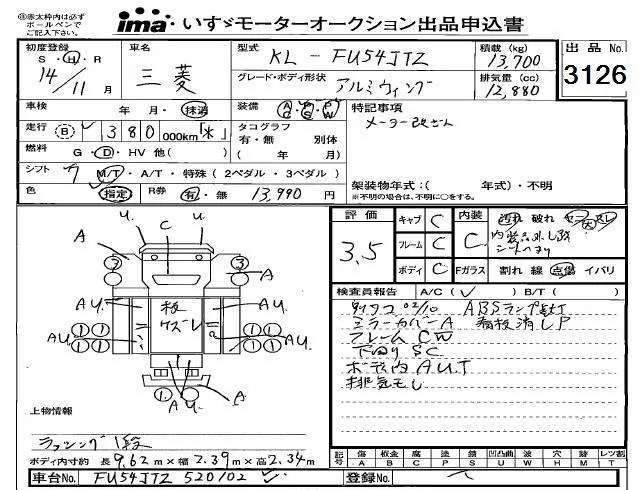 ㊟赤太枠内は必ず
ボールペンで
ご記入下さい。
ima いすゞモーターオークション出品申込書
初度登録
S・H・R
14/11月
車名
三菱
型式
KL-FU54JTZ
積載(kg)
13,700
出品No.
3126
グレード・ボディ形状
アルミウィング
排気量(cc)
12,880
車検
年 月・抹消
装備
AC・PS・PW
特記事項
メーター改ざん
走行
B
380 000km「*」
タコグラフ
有・無 別体
( 年 月)
燃料
G・D・HV 他( )
シフト
7 M/T・A/T・特殊(2ペダル・3ペダル)
架装物年式:( 年式)・不明
※不明の場合は、不明に○をする。
色
指定
R券
有・無
13,990 円
評価
3.5
キャブ C
フレーム C
ボディ C
内装
C
Fガラス
汚れ 破れ
内装品外し跡
割れ 線 点傷 イバリ
検査員報告
A/C( ✓ ) B/T( )
02/10 ABSランプ点灯
ミラーカバーA 看板消しP
フレームCW
下回りSC
ボディ内AUT
排気モレ
U. U.
A C A
3 3
A A
AU. AU.
板
AU. AU.
1 1 1 1
1 1 1 1
1 1
AU.
上物情報
ラッシング1段
ボディ内寸約 長9.62m×幅2.39m×高2.34m
記号
傷 A
板金 B
腐 C
塗 P
錆 S
凹凸曲 U
波 W
穴 H
跡 M
レツ割 T
車台No.
FU54JTZ 520102
登録No.